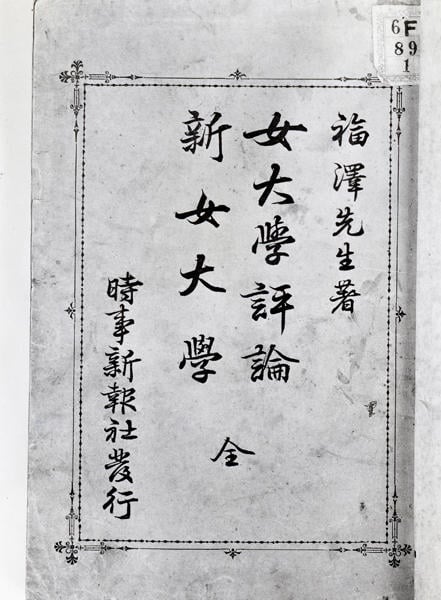 福澤先生著
女大學評論
新女大學
全
時事新報社發行
F
6 9
8 1